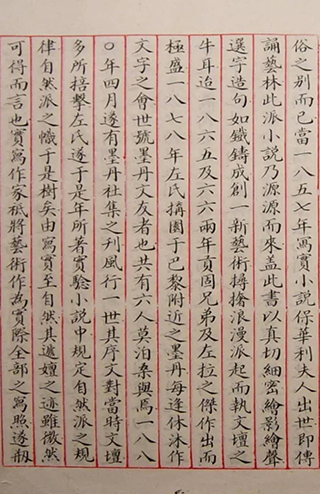 俗之别而已當一八五七年寫實小說保華利夫人出世即傳
誦藝林此派小說乃源源而來盖此書以真切細密繪影繪聲
選字造句如鐵鑄成創一新藝術撏撦浪漫派起而執文壇之
牛耳迨一八六五及六六兩年貢固兄弟及左拉之傑作出而
極盛一八七八年左氏搆園于巴黎附近之墨丹每逢休沐作
文字之會世號墨丹文友者也共有六人莫泊桑與焉一八八
〇年四月遂有墨丹社集之刊風行一世其序文對當時文壇
多所掊擊左氏遂于是年所著實驗小說中規定自然派之規
律自然派之幟于是樹矣由寫實至自然其遞嬗之迹雖微然
可得而言也實寫作家衹將藝術作為實際全部之寫照逐瓶